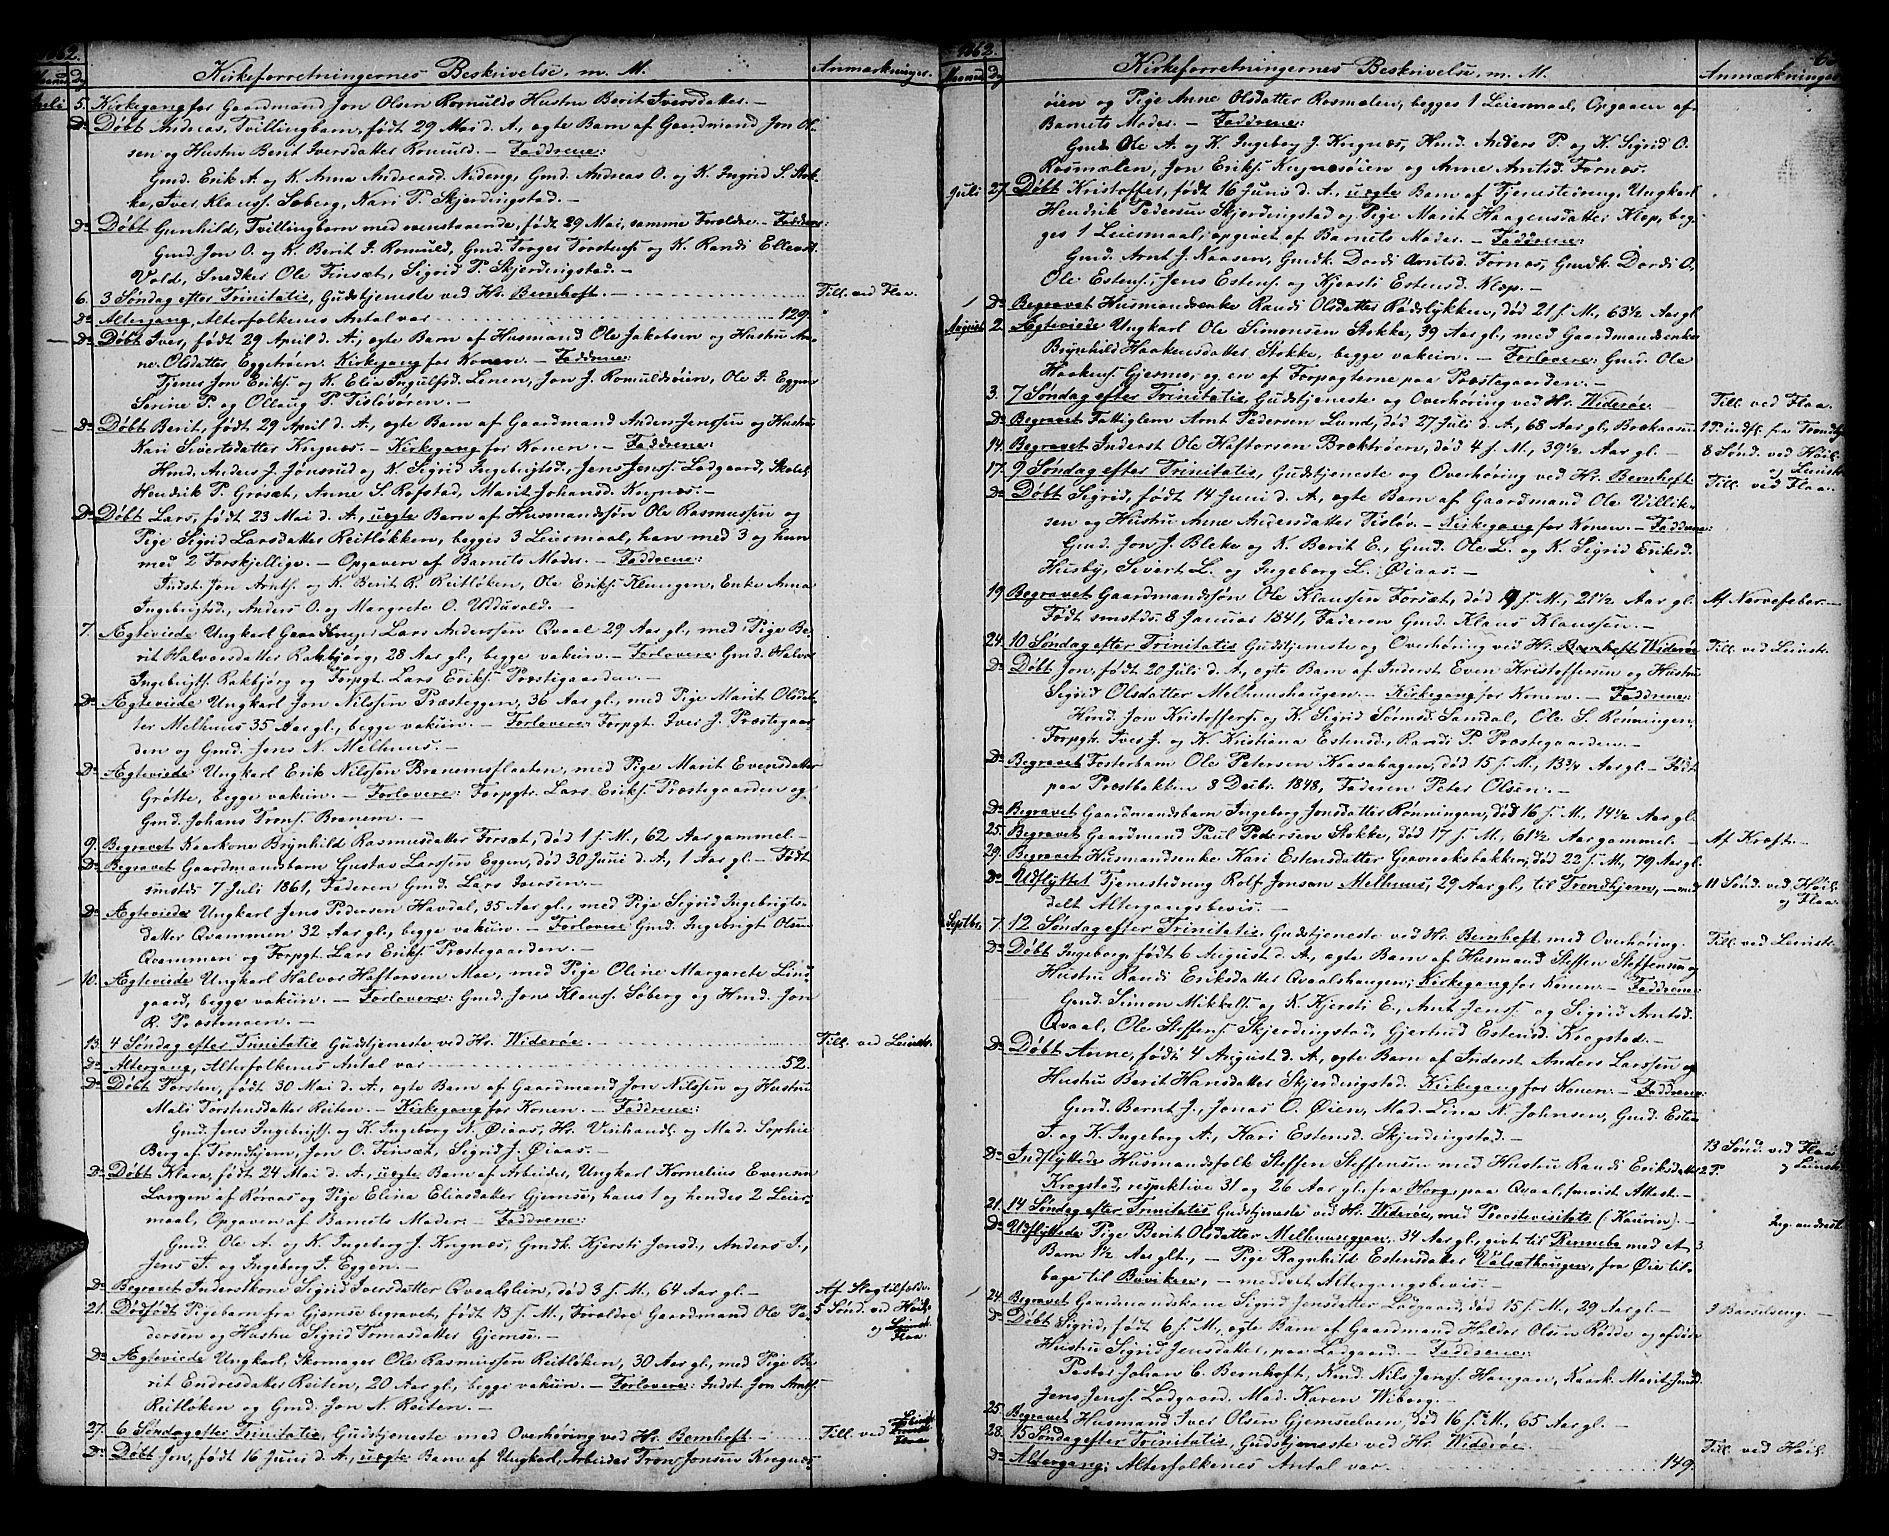 1862.
Kirkeforretningernes Beskrivelse, m. M.
Anmærkninger.
Juli 5. Kirkegang for Gaardmand Jon Olsen Romulds Hustru Berit Iversdatter. —
Do Døbt Andreas, Tvillingbarn, født 29 Mai d. A., ægte Barn af Gaardmand Jon Ol-
sen og Hustru Berit Iversdatter Romuld. — Faddrene:
Gmd. Erik A. og K. Anna Andreasd. Nideng, Gmd. Andreas O. og K. Ingrid S. Stok-
ke, Iver Klauss. Søberg, Kari P. Skjerdingstad. —
Do Døbt Gunhild, Tvillingbarn med ovenstaaende, født 29 Mai, samme Forældre. — Faddrene:
Gmd. Jon O. og K. Berit I. Romuld, Gmd. Torger Torstens. og K. Randi Ellevsd.
Vold, Snedker Ole Finsæt, Sigrid P. Skjerdingstad. —
6. 3 Søndag efter Trinitatis, Gudstjeneste ved Hr. Bernhoft. — Till. ved Flaa.
Do Altergang, Alterfolkenes Antal var 129.
Do Døbt Iver, født 29 April d. A., ægte Barn af Husmand Ole Jakobsen og Hustru An-
ne Olsdatter Eggetrøen. Kirkegang for Konen. — Faddrene:
Tjener Jon Eriks. og K. Elia Ingulfsd. Lenen, Jon J. Romuldsøien, Ole I. Eggen
Serine P. og Ollaug P. Tisløsøren. —
Do Døbt Berit, født 29 April d. A., ægte Barn af Gaardmand Anders Jenssen og Hustru
Kari Sivertsdatter Kregnes. — Kirkegang for Konen. — Faddrene:
Hmd. Anders J. Jønsrud og K. Sigrid Ingebrigtsd., Jens Jenss. Ladgaard, Skolel.
Hendrik P. Grøsæt, Anne S. Rofstad, Marit Johansd. Kregnes. —
Do Døbt Lars, født 23 Mai d. A., uægte Barn af Husmandssøn Ole Rasmussen og
Pige Sigrid Larsdatter Reitløkken, begges 3 Leiermaal, han med 3 og hun
med 2 Forskjellige. — Opgaven af Barnets Moder. — Faddrene:
Indst. Jon Arnts. og K. Berit R. Reitløken, Ole Eriks. Klungen, Enke Anna
Ingebrigtsd., Anders O. og Margrete O. Udduvold. —
7. Ægteviede Ungkarl Gaardbruger Lars Anderssen Qvaal 29 Aar gl., med Pige Be-
rit Halvorsdatter Rakbjørg, 28 Aar gl., begge vakcin. — Forlovere: Gmd. Halvor
Ingebrigts. Rakbjørg og Forpgt. Lars Eriks. Præstegaarden. —
Do Ægteviede Ungkarl Jon Nilssen Præsteggen, 36 Aar gl., med Pige Marit Olsdat-
ter Melhuus 35 Aar gl., begge vakcin. — Forlovere: Forpgt. Iver J. Præstegaar-
den og Gmd. Jens N. Melhuus. —
Do Ægteviede Ungkarl Erik Nilssen Branemsflaaten, med Pige Marit Evensdatter
Grøtte, begge vakcin. — Forlovere: Forpgtr. Lars Eriks. Præstegaarden og
Gmd. Johans Trons. Branem. —
9. Begravet Kaarkone Brynhild Rasmusdatter Forsæt, død 1 f. M., 62 Aar gammel. —
Do Begravet Gaardmandsbarn Gustav Larssen Eggen, død 30 Juni d. A., 1 Aar gl. — Født
smstds 7 Juli 1861, Faderen Gmd. Lars Iversen. —
Do Ægteviede Ungkarl Jens Pedersen Havdal, 35 Aar gl., med Pige Sigrid Ingebrigts-
datter Qvammen 32 Aar gl., begge vakcin. — Forlovere Gmd. Ingebrigt Olsen
Qvammen og Forpgt. Lars Eriks. Præstegaarden. —
10. Ægteviede Ungkarl Halvor Haftorsen Moe, med Pige Oline Margarete Lind-
gaard, begge vakcin. — Forlovere: Gmd. Jons Klauss. Søberg og Hmd. Jon
R. Præstmoen. —
13. 4 Søndag efter Trinitatis Gudstjeneste ved Hr. Widerøe. — Till. ved Leinstr.
Do Altergang, Alterfolkenes Antal var 52.
Do Døbt Torsten, født 30 Mai d. A., ægte Barn af Gaardmand Jon Nilssen og Hustru
Mali Torstensdatter Reiten. — Kirkegang for Konen. — Faddrene:
Gmd. Jens Ingebrigts. og K. Ingeborg N. Øiaas, Hr. Vinhandl. og Mad. Sophie
Berg af Trondhjem, Jon O. Finsæt, Sigrid J. Øiaas. —
Do Døbt Klara, født 24 Mai d. A., uægte Barn af Arbeider, Ungkarl Kornelius Evensen
Langen af Røraas og Pige Elena Eliasdatter Gjemse, hans 1 og hendes 2 Leier-
maal, Opgaven af Barnets Moder. — Faddrene:
Gmd. Ole A. og K. Ingeborg J. Kregnes, Gmdk. Kjersti Jensd., Anders I.,
Jens I. og Ingeborg I. Eggen. —
Do Begravet Inderstkone Sigrid Iversdatter Qvaalslien, død 3 f. M., 64 Aar gl. — Af Slagtilfælde.
21. Dødfødt Pigebarn fra Gjemse begravet, født 13 f. M., Forældre Gaardmand Ole Pe- 5 Sønd. ved Høil.
dersen og Hustru Sigrid Tomasdatter Gjemse. — og Flaa.
Do Ægteviede Ungkarl, Skomager Ole Rasmussen Reitløken, 30 Aar gl., med Pige Be-
rit Endresdatter Reiten, 20 Aar gl., begge vakcin. — Forlovere: Indst. Jon Arnts.
Reitløken og Gmd. Jon N. Reiten. —
27. 6 Søndag efter Trinitatis, Gudstjeneste med Overhøring ved Hr. Bernhoft. — Till. ved Leinstr.
Do Døbt Jon, født 16 Juni d. A., uægte Barn af Ungkarl, Arbeider Tron Jonsen Kregnes-
1862.
Kirkeforretningernes Beskrivelse, m. M.
Anmærkninger
øien og Pige Anne Olsdatter Rosmælen, begges 1 Leiermaal, Opgaven af
Barnets Moder. — Faddrene:
Gmd. Ole A. og K. Ingeborg J. Kregnes, Hmd. Anders P. og K. Sigrid O.
Rosmælen, Jon Eriks. Kregnesøien og Anne Arntsd. Fornes.
Juli 27. Døbt Kristoffer, født 16 Juni d. A., uægte Barn af Tjenestedreng, Ungkarl
Hendrik Pedersen Skjerdingstad og Pige Marit Haagensdatter Kløp, beg-
ges 1 Leiermaal, opgivet af Barnets Moder. — Faddrene:
Gmd. Arnt J. Kaasen, Gmdk. Dordi Arntsd. Fornes, Gmdk. Dordi O.,
Ole Estens., Jens Estens. og Kjersti Estensd. Kløp. —
Do Begravet Husmandsenke Randi Olsdatter Rødslykken, død 21 f. M., 63½ Aar gl.
August 2. Ægteviede Ungkarl Ole Simonsen Stokke, 39 Aar gl., med Gaardmandsenke
Brynhild Haakensdatter Stokke, begge vakcin. — Forlovere: Gmd. Ole
Haakens. Gjemse, og en af Forpagterne paa Præstegaarden. —
3. 7 Søndag efter Trinitatis, Gudstjeneste og Overhøring ved Hr. Widerøe. — Till. ved Flaa.
Do Begravet Fattiglem Arnt Pedersen Lund, død 27 Juli d. A., 68 Aar gl., 1 P. indfl. fra Trondhj.
14. Begravet Inderst Ole Haftorsen Brektrøen, død 4 f. M., 39½ Aar gl. — 8 Sønd. ved Høil.
17. 9 Søndag efter Trinitatis, Gudstjeneste og Overhøring ved Hr. Bernhoft. og Leinstr.
Do Døbt Sigrid, født 14 Juni d. A., ægte Barn af Gaardmand Ole Villik- Till. ved Flaa.
sen og Hustru Anne Andersdatter Tisløv. — Kirkegang for Konen. — Faddrene:
Gmd. Jon J. Bleke og K. Berit E., Gmd. Ole L. og K. Sigrid Eriksd.
Husby, Sivert L. og Ingeborg L. Øiaas. —
19. Begravet Gaardmandssøn Ole Klaussen Forsæt, død 9 f. M., 21½ Aar gl. Af Nervefeber. —
Født smstds. 8 Januar 1841, Faderen Gmd. Klaus Klaussen. —
24. 10 Søndag efter Trinitatis Gudstjeneste og Overhøring ved Hr. Bernhoft Widerøe Till. ved Leinstr.
Do Døbt Jon, født 20 Juli d. A., ægte Barn af Inderst Even Kristoffersen og Hustru
Sigrid Olsdatter Melhuushaugen. — Kirkegang for Konen. — Faddrene:
Hmd. Jon Kristoffers. og K. Sigrid Sørensd. Sandal, Ole S. Rønningen,
Forpgtr. Iver J. og K. Kristiana Estensd., Randi P. Præstegaarden. —
Do Begravet Fosterbarn Ole Petersen Kaasahagen, død 15 f. M., 13¾ Aar gl. — Født
paa Præstbakken 8 Decbr. 1848, Faderen Peter Olsen. —
Do Begravet Gaardmandsbarn Ingeborg Jonsdatter Rønningen, død 16 f. M., 14½ Aar gl.
25. Begravet Gaardmand Paul Pedersen Stokke, død 17 f. M., 61½ Aar gammel. — Af Kræft. —
29. Begravet Husmandsenke Kari Estensdatter Gravraaksbakken, død 22 f. M., 79 Aar gl.
Do Udflyttet Tjenestedreng Rolf Jonsen Melhuus, 29 Aar gl., til Trondhjem, — med- 11 Sønd. ved Høil.
delt Altergangsbevis. — og Flaa.
Septbr. 7. 12 Søndag efter Trinitatis, Gudstjeneste ved Hr. Bernhoft med Overhøring. Till. ved Leinstr.
Do Døbt Ingeborg, født 6 August d. A., ægte Barn af Husmand Steffen Steffensen og
Hustru Randi Eriksdatter Qvaalshaugen; Kirkegang for Konen. — Faddrene:
Gmd. Simon Mikkels. og K. Kjersti E., Arnt Jens. og Sigrid Arntsd.
Qvaal, Ole Steffens. Skjerdingstad, Gjertrud Estensd. Krogstad. —
Do Døbt Anne, født 4 August d. A., ægte Barn af Inderst Anders Larssen og
Hustru Berit Hansdatter Skjerdingstad. Kirkegang for Konen. — Faddrene:
Gmd. Bernt J., Jonas O. Øien, Mad. Lina N. Johnsen, Gmd. Esten
T. og K. Ingeborg A., Kari Estensd. Skjerdingstad. —
13 Sønd. ved Flaa
Do Indflyttede Husmandsfolk Steffen Steffensen med Hustru Randi Eriksdatter 2 P. og Leinstr.
Krogstad, respektive 31 og 26 Aar gl., fra Horg, paa Qvaal, foreviist Attest. —
21. 14 Søndag efter Trinitatis Gudstjeneste ved Hr. Widerøe, med Provstevisitats (: Kaurin). — Ing. andensteds
Do Udflyttede Pige Berit Olsdatter Melhuuseggen, 34 Aar gl., givt til Rennebo med et 3.
Barn 1½ Aar glt., — Pige Ragnhild Estensdatter Valsæthaugen, fra Øie til-
bage til Buviken, — med vet Altergangsbevis. —
24. Begravet Gaardmandskone Sigrid Jensdatter Ladgaard, død 15 f. M., 29 Aar gl. — I Barselseng. —
Do Døbt Sigrid, født 6 f. M., ægte Barn af Gaardmand Haldor Olsen Rødde og afdøde
Hustru Sigrid Jensdatter, paa Ladgaard. — Faddrene:
Pastor Johan C. Bernhoft, Kmd. Nils Jenss. Haugan, Kaark. Marit Jensd.
Jens Jenss. Ladgaard, Mad. Karen Wiborg. —
25. Begravet Husmand Iver Olsen Gjemseelven, død 16 f. M., 65 Aar gl.
28. 15 Søndag efter Trinitatis, Gudstjeneste ved Hr. Widerøe. Till. ved Høil.
Do Altergang, Alterfolkenes Antal var 149.